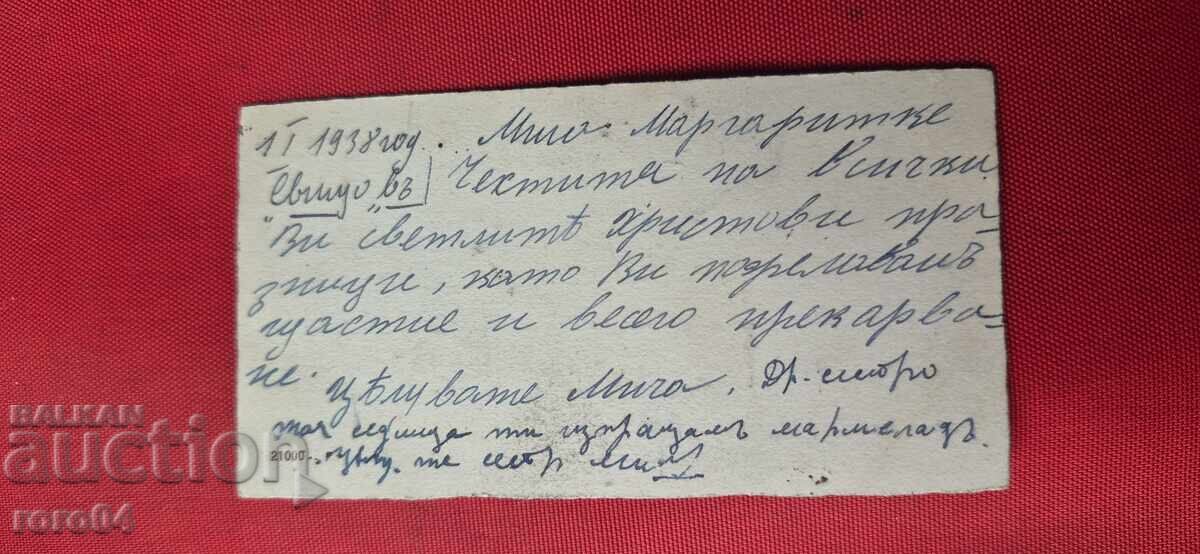 1 I 1938 год. Мило Маргаритке
въ Честита на Всички
Ви светлитѣ Христови пра-
зници, като Ви пожелавамъ
щастие и весело прекарва-
не. Цѣлувате Мича. Др.
тая седмица ти изпращамъ мармеладъ.
21000 те
BALKAN
auction
roro04